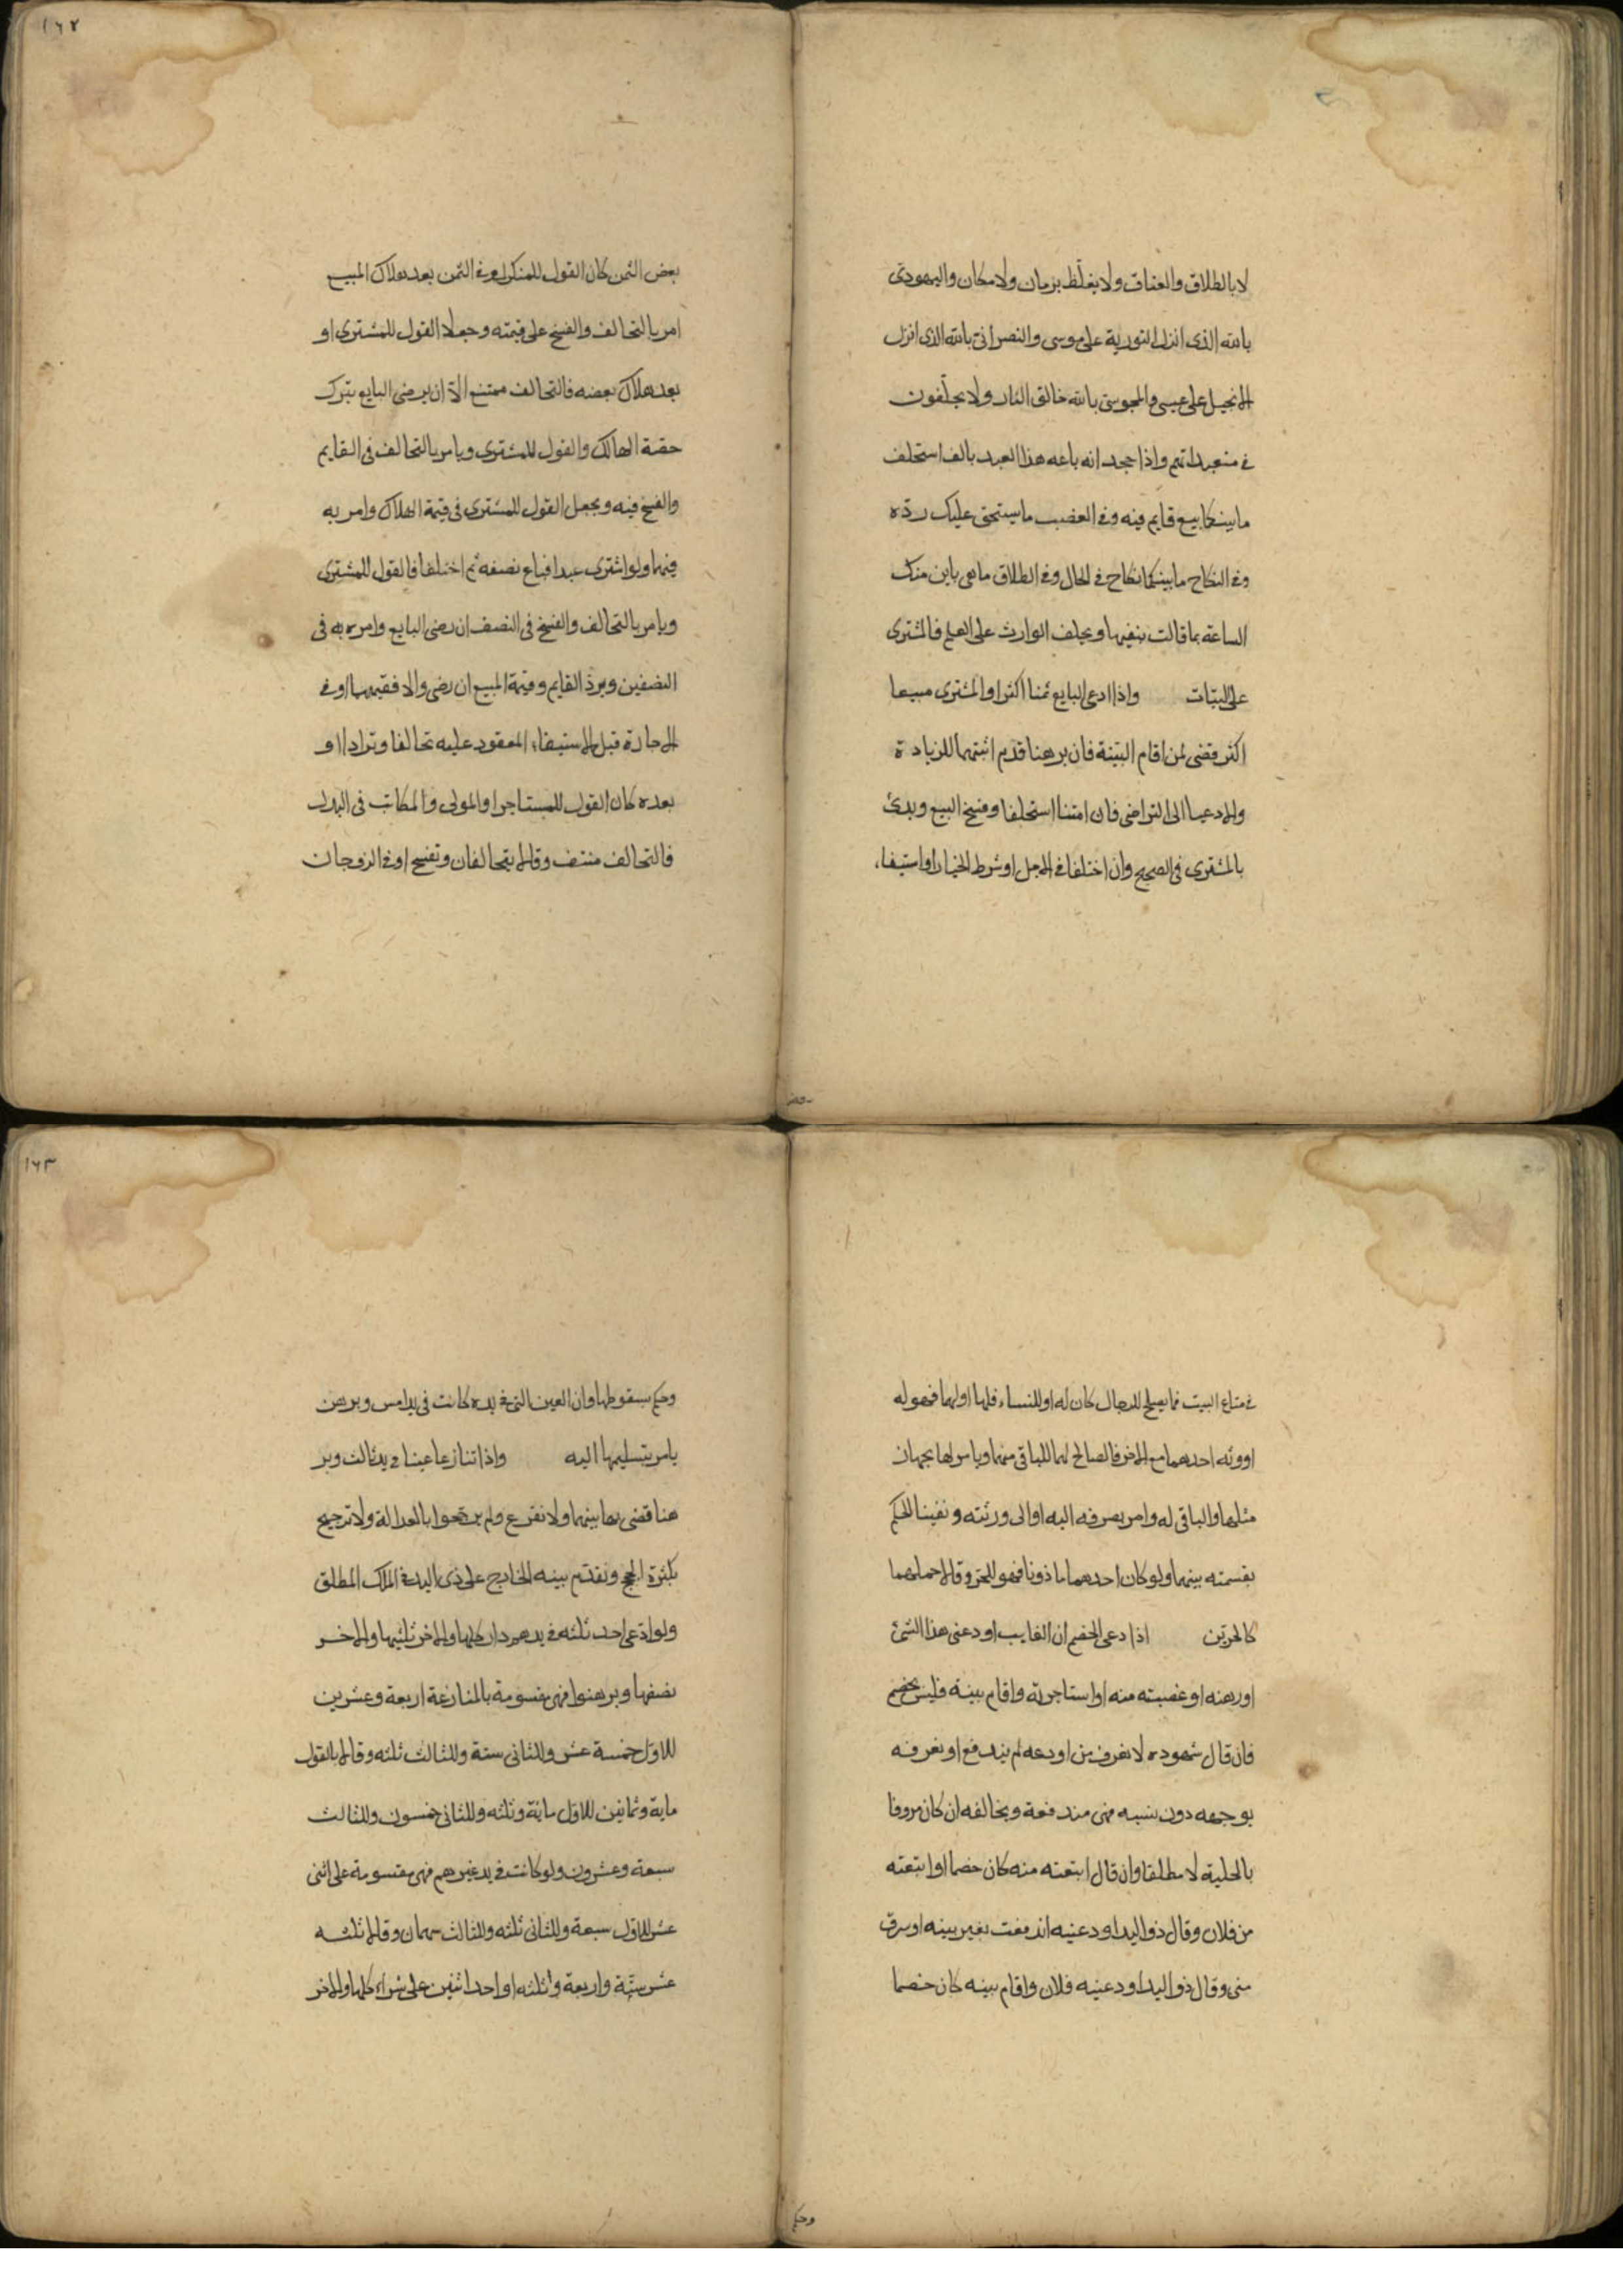 لا بالطلاق والعتاق ولا يغلّظ بزمان ولا مكان واليهودى
بالله الذى انزل التورية على موسى والنصرانى بالله الذى انزل
الانجيل على عيسى والمجوسى بالله خالق النار ولا يحلّفون
فى متعبداتهم واذا جحد انه باعه هذا العبد بالف استحلف
ما بينكما بيع قايم فيه وفى الغصب ما يستحق عليك ردّه
وفى النكاح ما بينكما نكاح فى الحال وفى الطلاق ما هى باين منك
الساعة بما قالت بنفيها ويحلف الوارث على العلم والمشترى
على البتات واذا ادعى البايع ثمنا اكثر او المشترى مبيعا
اكثر قضى لمن اقام البيّنة فان برهنا قدم اثبتهما للزيادة
والا دعيا الى التراضى فان امتنعا استحلفا وفسخ البيع وبدئ
بالمشترى فى الصحيح وان اختلفا فى الاجل او شرط الخيار او استيفاء
بعض
١٦٢
بعض الثمن كان القول للمنكر او فى الثمن بعد هلاك المبيع
امر بالتحالف والفسخ على قيمته وجعلا القول للمشترى او
بعد هلاك بعضه فالتحالف ممتنع الّا ان يرضى البايع بترك
حصّة الهالك والقول للمشترى ويامر بالتحالف فى القايم
والفسخ فيه ويجعل القول للمشترى فى قيمة الهلاك وامر به
فيهما ولو اشترى عبدا فباع نصفه ثم اختلفا فالقول للمشترى
ويامر بالتحالف والفسخ فى النصف ان رضى البايع وامره به فى
النصفين ويردّ القايم وقيمة المبيع ان رضى والا فقيمتهما او فى
الاجارة قبل الاستيفاء المعقود عليه تحالفا وترادا او
بعده كان القول للمستاجر او المولى والمكاتب فى البدل
فالتحالف منتف وقالا يتحالفان وتفسخ او فى الزوجان
فى متاع البيت فما يصلح للرجال كان له او للنساء فلها او لهما فهو له
او ورثه احدهما مع الاخر فالصالح لهما للباقى منهما ويامر لها بجهاز
مثلها والباقى له وامر بصرفه اليه او الى ورثته ونفينا الحكم
بقسمته بينهما ولو كان احدهما ماذونا فهو للحرّ وقالا حملهما
كالحرّين اذا دعى الخصم ان الغايب اودعنى هذا الشئ
او رهنه او غصبته منه او استاجرته واقام بينة فليس بخصم
فان قال شهوده لا نعرف من اودعه لم يندفع او نعرفه
بوجهه دون نسبه فهى مندفعة ويخالفه ان كان معروفا
بالحلية لا مطلقا وان قال ابتعته منه كان خصما او ابتعته
من فلان وقال ذو اليد اودعنيه اندفعت بغير بينه او سرق
منى وقال ذو اليد اودعنيه فلان واقام بينه كان خصما
وحكم
١٦٣
وحكم بسقوطها وان العين التى فى يده كانت فى يدامس وبرهن
يامر بتسليمها اليه واذا تنازعا عينا فى يد ثالث وبر
هنا قضى بها بينهما ولا نقرع ولم يرجّحوا بالعدالة ولا ترجيح
بكثرة الحجج ونقدّم بينه الخارج على ذى اليد فى الملك المطلق
ولو ادّعى احد ثلثه فى يدهم دار كلها والاخر ثلثيها والاخر
نصفها وبرهنوا فهى مقسومة بالمنازعة اربعة وعشرين
للاوّل خمسة عشر وللثانى ستة وللثالث ثلثه وقالا بالعول
ماية وثمانين للاوّل ماية وثلثه وللثانى خمسون وللثالث
سبعة وعشرون ولو كانت فى يد غيرهم فهى مقسومة على اثنى
عشر للاوّل سبعة وللثانى ثلثه وللثالث سهمان وقالا ثلثه
عشر ستّة واربعة وثلثه او احد اثنين على شراء كلها والاخر